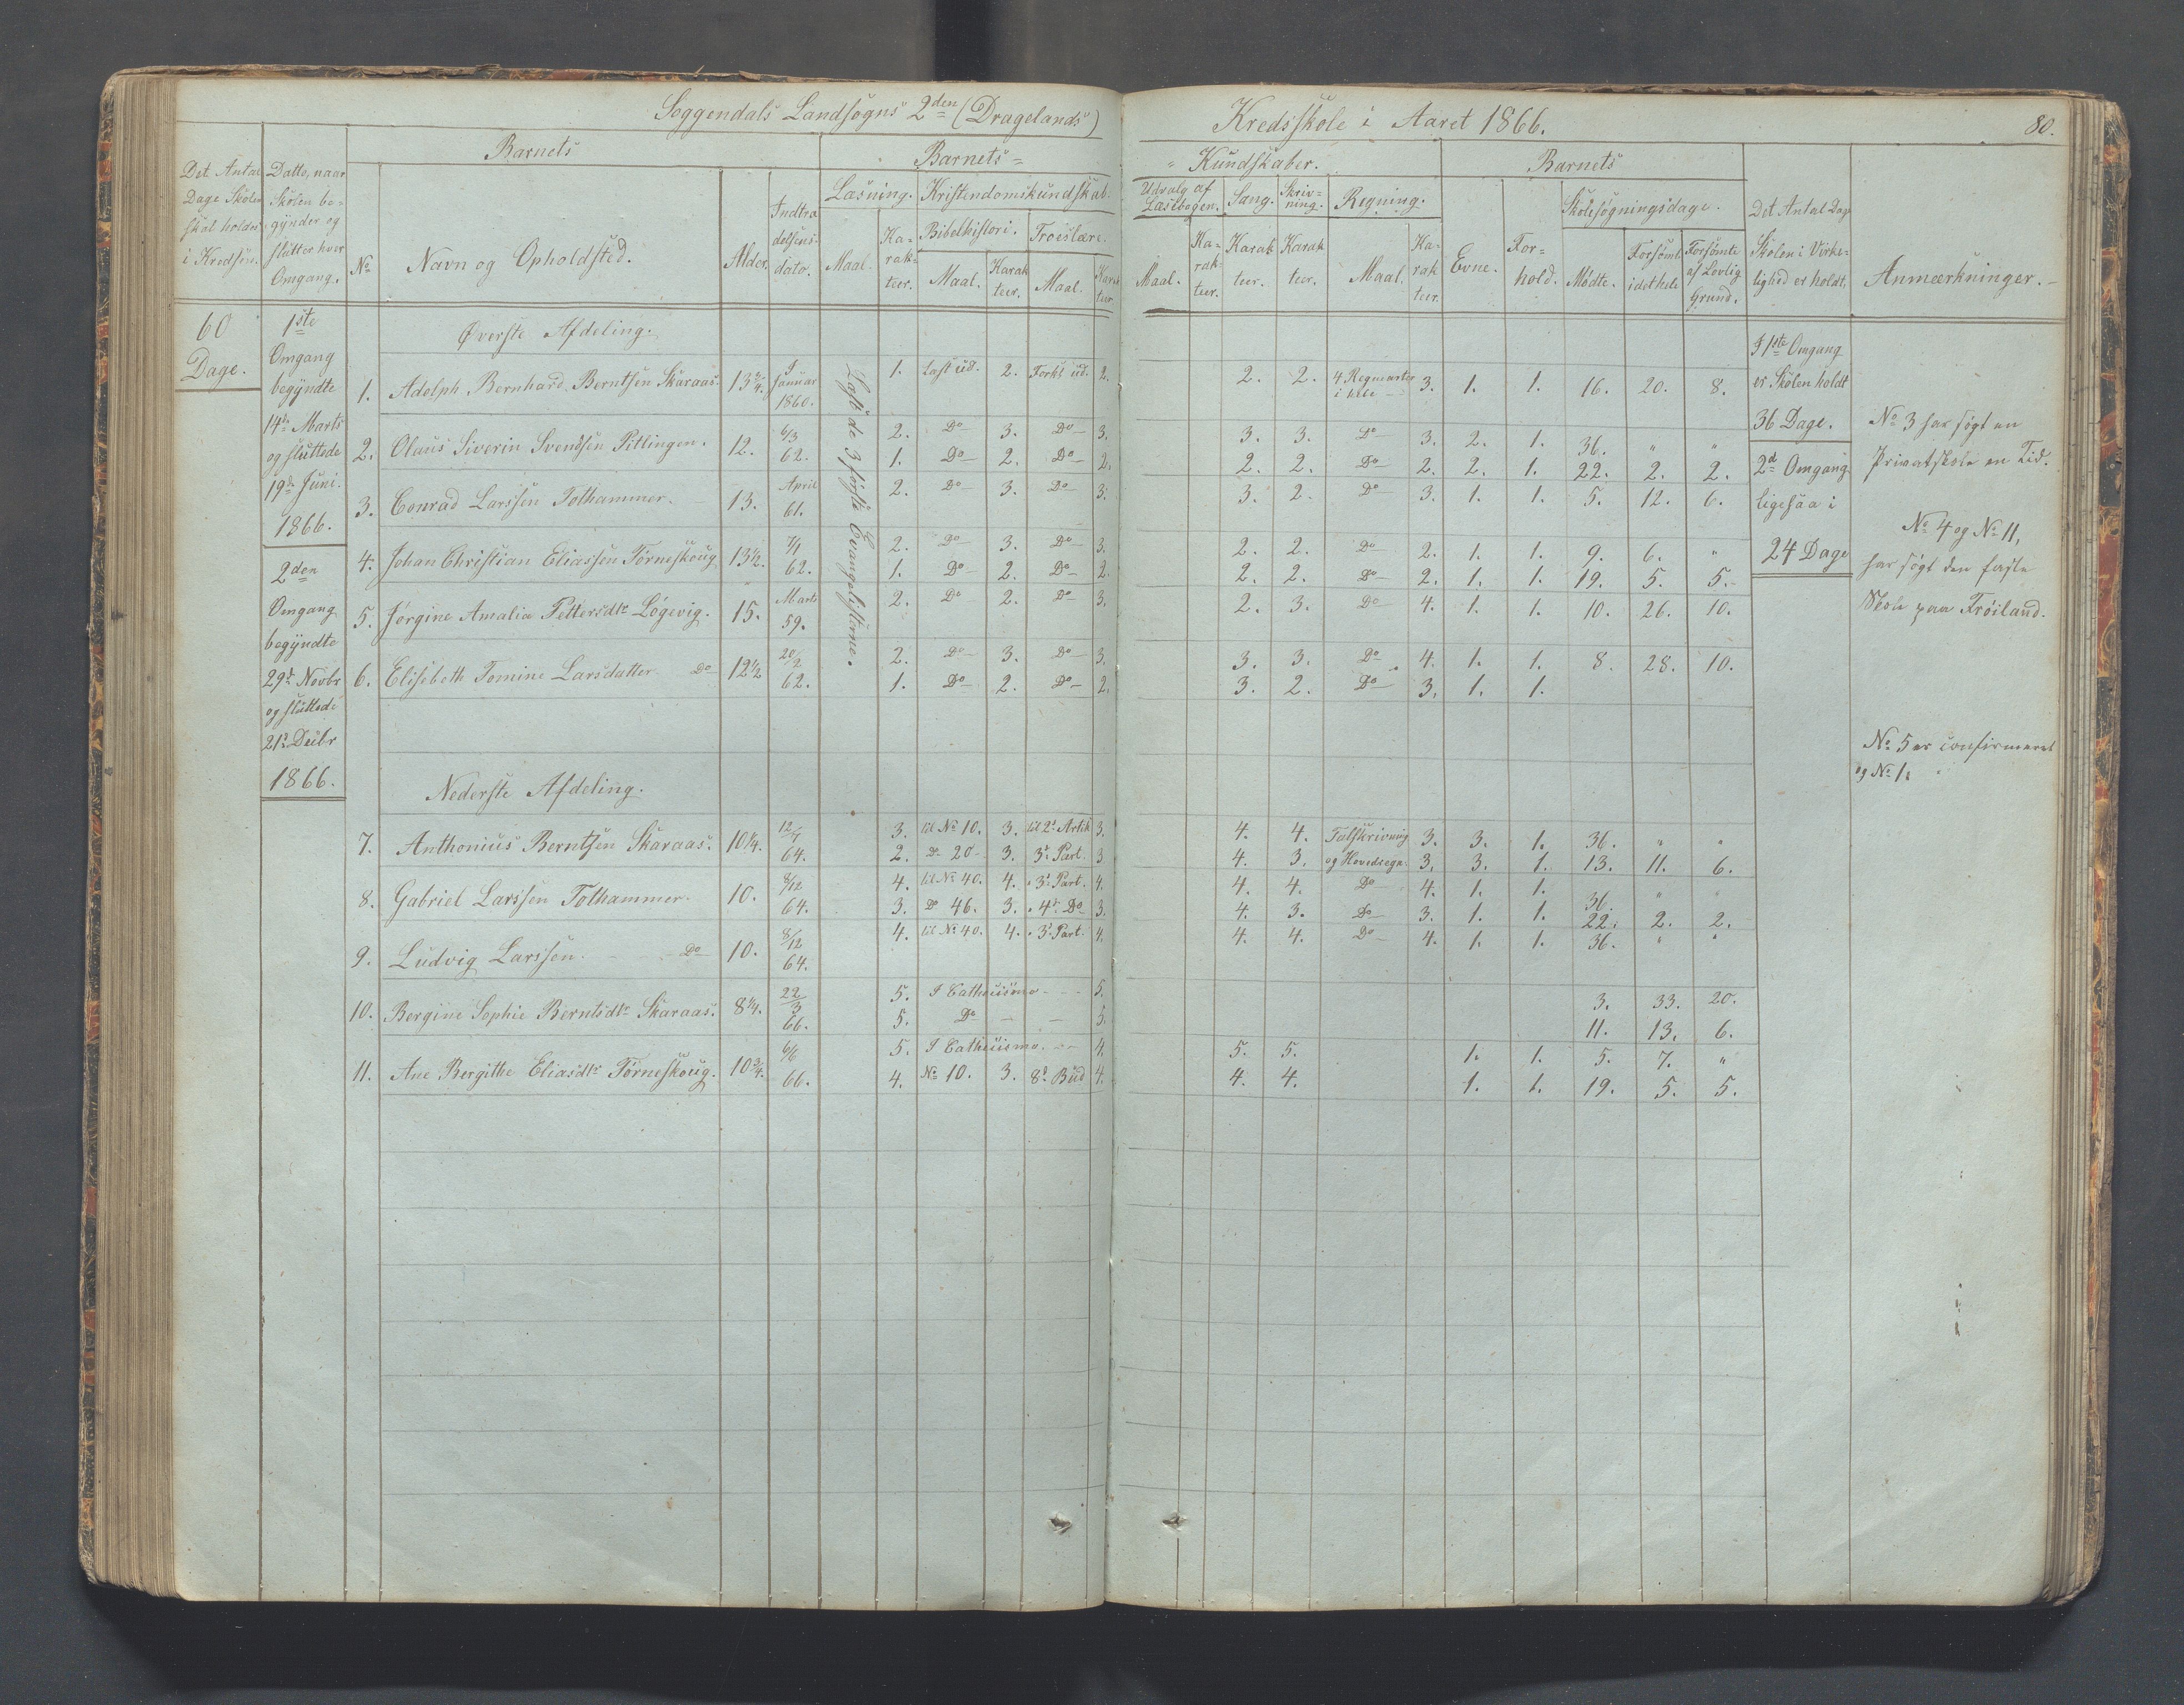 Soggendals Landsogns 2den (Dragelands) Kredsskole i Aaret 1866. 80.
Det Antal Dage Skolen skal holdes i Kredsen.
Datto, naar Skolen begynder og slutter hver Omgang.
Barnets
No
Navn og Opholdsted.
Alder.
Indtrædelsens dato.
Barnets Kundskaber.
Læsning.
Maal.
Karakteer.
Kristendomskundskab.
Bibelhistori.
Maal.
Karakteer.
Troeslære.
Maal.
Karakteer.
Udvalg af Læsebogen.
Maal.
Karakteer.
Sang.
Karakteer.
Skrivning.
Karakteer.
Regning.
Maal.
Karakteer.
Barnets
Evne.
Forhold.
Skolesøgningsdage.
Mødte.
Forsømt i det hele
Forsømte af Lovlig Grund.
Det Antal Dage Skolen i Virkelighed er holdt.
Anmærkninger.
60
Dage.
1ste
Omgang
begyndte
14de Marts
og sluttede
19de Juni.
1866.
2den
Omgang
begyndte
29d Novbr
og sluttede
21d Decbr
1866.
Øverste Afdeling.
Læst de 3 første Evangelisterne.
1. Adolph Bernhard Berntsen Skaraas. 13 3/4. I Januar 1860. 1. Læst ud. 2. Forkl ud. 2. 2. 2. 4 Regnearter i hele 3. 1. 1. 16. 20. 8.
2. Olaus Siverin Svendsen Pitlingen. 12. 6/3 62. 2. Do 3. Do 3. 3. 3. Do 3. 2. 1. 36. " "
1. Do 2. Do 2. 2. 2. Do 2. 2. 1. 22. 2. 2.
3. Conrad Larssen Tolhammer. 13. April 61. 2. Do 3. Do 3. 3. 2. Do 3. 1. 1. 5. 12. 6.
4. Johan Christian Eliassen Tørneskoug 13 1/2. 7/1 62. 2. Do 3. Do 3. 2. 2. Do 2. 1. 1. 9. 6. "
1. Do 2. Do 2. 2. 2. Do 2. 1. 1. 19. 5. 5.
5. Jørgine Amalia Pettersdtr Løgevig. 15. Marts 59. 2. Do 2. Do 3. 2. 3. Do 4. 1. 1. 10. 26. 10.
6. Elisebeth Tomine Larsdatter Do 12 1/2 20/2 62. 2. Do 3. Do 3. 3. 3. Do 4. 1. 1. 8. 28. 10.
1. Do 2. Do 2. 3. 2. Do 3. 1. 1.
Nederste Afdeling.
7. Anthonius Berntsen Skaraas. 10 1/4. 12/7 64. 3. til No 10. 3. til 2d Artik 3. 4. 4. Talskrivning 3. 3. 1. 36. " "
2. Do 20 3. 3d Part. 3 4. 3. og Hovedregn. 3. 3. 1. 13. 11. 6.
8. Gabriel Larssen Tolhammer. 10. 8/12 64. 4. til No 40. 4. 3d Part. 4. 4. 4. Do 4. 1. 1. 36. " "
3. Do 46. 3. 4d Do 3. 4. 3. Do 3. 1. 1. 22. 2. 2.
9. Ludvig Larssen. Do 10. 8/12 64. 4. til No 40. 4. 3d Part. 4. 4. 4. Do 4. 1. 1. 36. " "
10. Bergine Sophie Berntsdtr Skaraas. 8 1/4. 22/3 66. 5. I Cathecismo 5. 3. 33. 20.
5. Do 5. 11. 13. 6.
11. Ane Bergithe Eliasdtr Tørneskoug. 10 3/4. 6/6 66. 5. I Cathecismo. 4. 5. 5. 1. 1. 5. 7. "
4. No 10. 3. 8d Bud 4. 4. 4. 1. 1. 19. 5. 5.
I 1ste Omgang
er Skolen holdt
36 Dage.
2d Omgang
ligesaa i
24 Dage
No 3 har søgt en
Privatskole en Tid.
No 4 og No 11,
har søgt den faste
Skole paa Frøiland.
No 5 er confirmeret
og No 1.